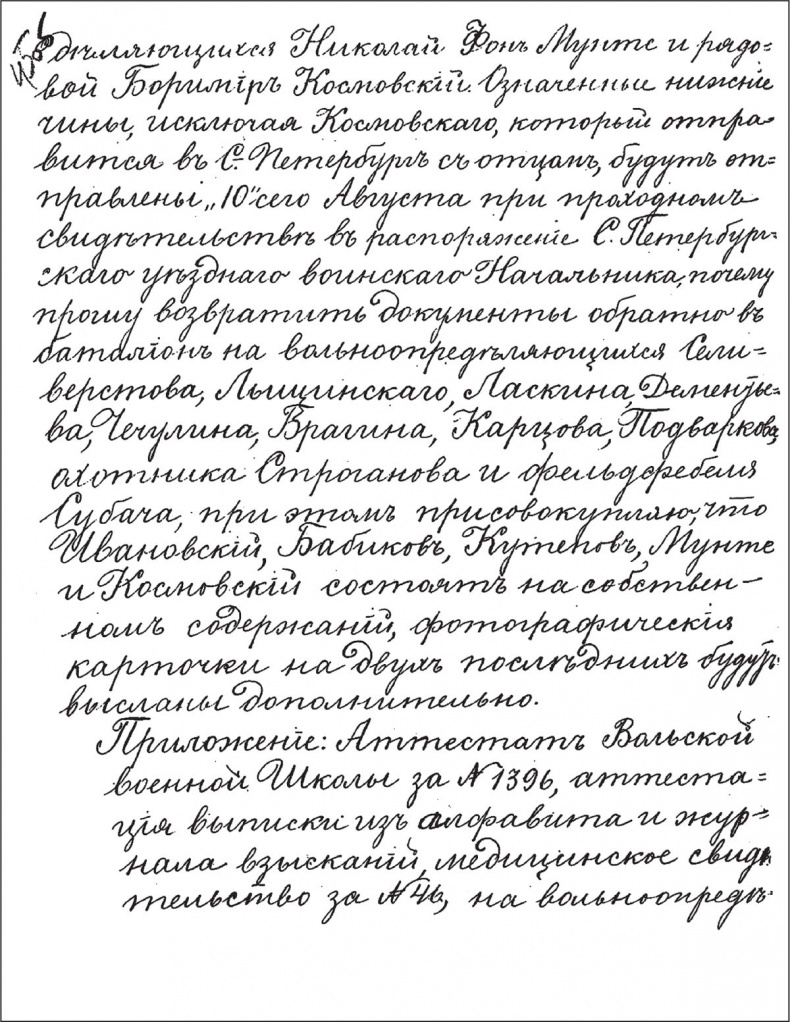 дѣляющихся Николай Фонъ Мунте и рядо=
вой Боримiръ Космовскій. Означенные нижніе
чины, исключая Космовскаго, который отпра=
вится въ С.-Петербургъ съ отцомъ, будутъ от=
правлены „10" сего Августа при проходномъ
свидѣтельствѣ въ распоряженіе С. Петербург-
скаго уѣзднаго воинскаго Начальника, почему
прошу возвратить документы обратно въ
баталіонъ на вольноопредѣляющихся Сели=
верстова, Лыщинскаго, Ласкина, Дементье=
ва, Чечулина, Брагина, Карцова, Подваркова,
охотника Строганова и фельдфебеля
Субача, при этомъ присовокупляю, что
Ивановскій, Бабиковъ, Кутеповъ, Мунте
и Космовскій состоятъ на собствен-
номъ содержаніи, фотографическія
карточки на двухъ послѣднихъ будутъ
высланы дополнительно.
Приложеніе: Аттестатъ Вольской
военной Школы за № 1396, аттеста=
ція выписки изъ алфавита и жур=
нала взысканій, медицинское свидѣ
тельство за № 46, на вольноопредѣ-